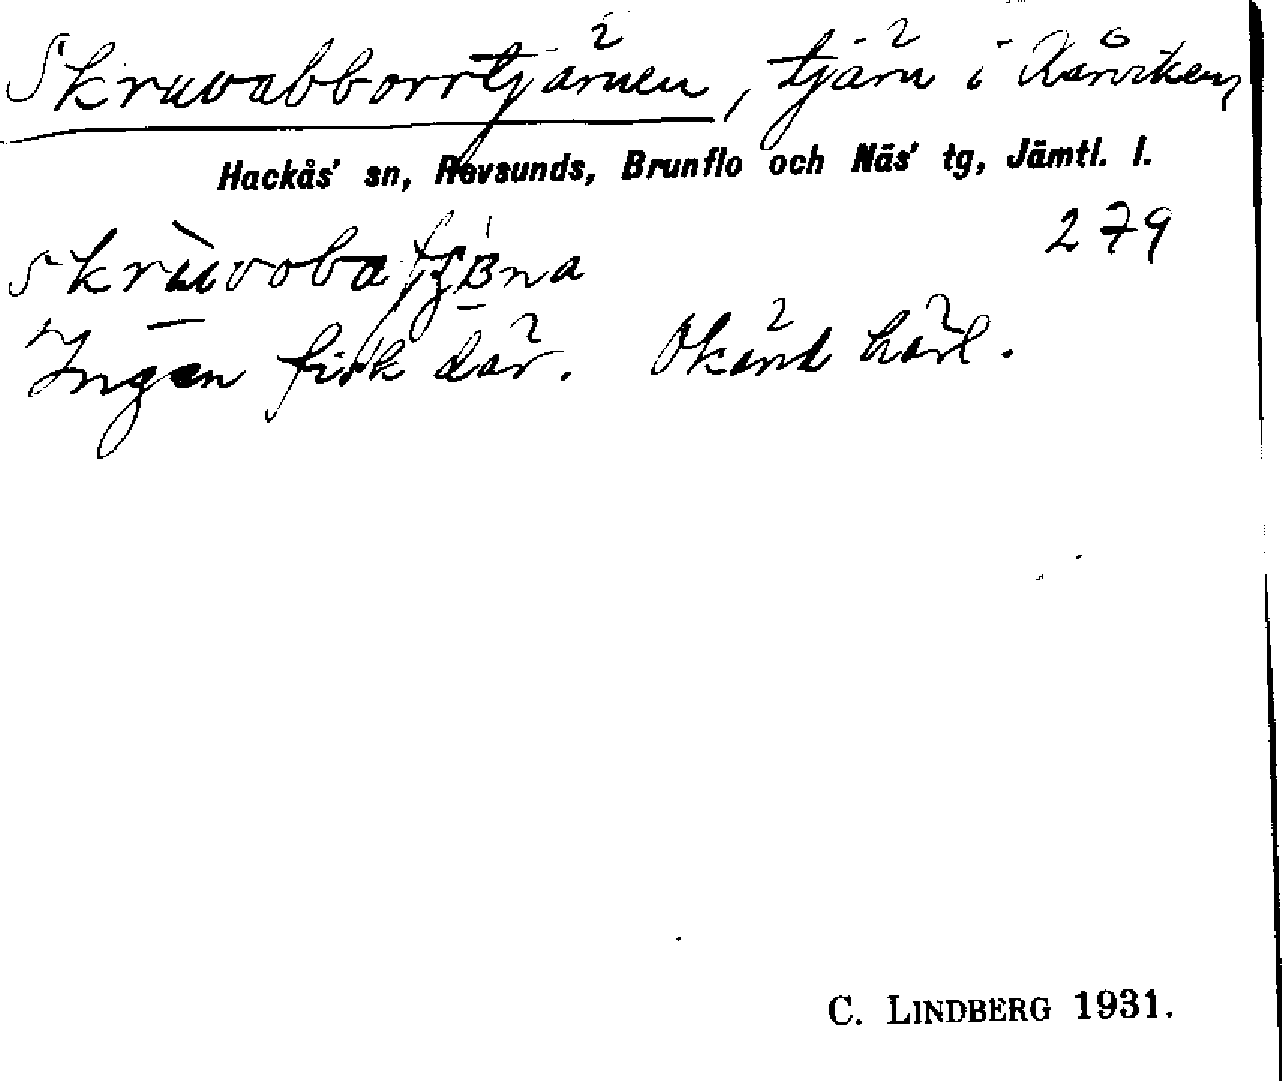 Skruvabborrtjärnen, tjärn i Kårviken,
Hackås' sn, Revsunds, Brunflo och Näs' tg, Jämtl. l.
279
Ingen fisk där. Okänd härl.
C. LINDBERG 1931.